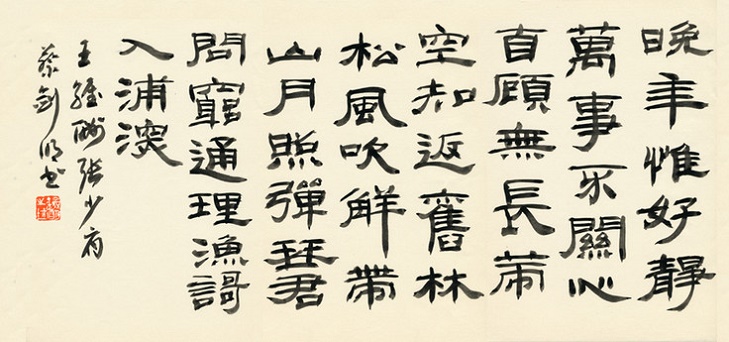 晚年惟好靜
萬事不關心
自顧無長策
空知返舊林
松風吹解帶
山月照彈琴君
問窮通理漁謌
入浦深
王維酬張少府
蔡劍明书